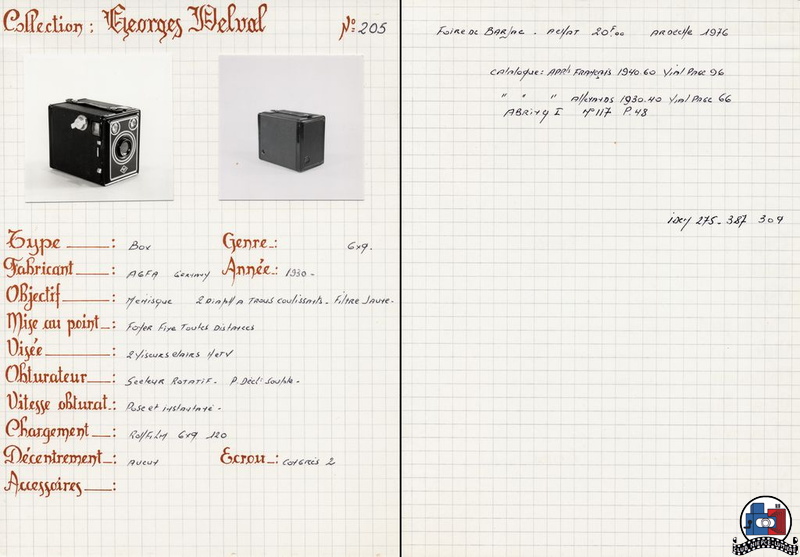 Collection : Georges Delval
No 205
Type : Box
Genre : 6x9.
Fabricant : AGFA Germany
Année : 1930 -
Objectif : Menisque 2 Diaph A Trous coulissants - Filtre Jaune -
Mise au point : Foyer Fixe Toutes Distances
Visée : 2 Viseurs clairs H et V
Obturateur : Secteur Rotatif - P. Décl: Souple -
Vitesse obturat. : Pose et instantané -
Chargement : Rollfilm 6x9 120
Décentrement : Aucun
Ecrou : Congrès 2
Accessoires :
Foire de Barjac - Achat 20F00 Ardeche 1976
Catalogue: APP Français 1940.60 Vial Page 96
" " " Allemands 1930.40 Vial Page 66
ABRING I No 117 P. 48
idem 275 - 387 309